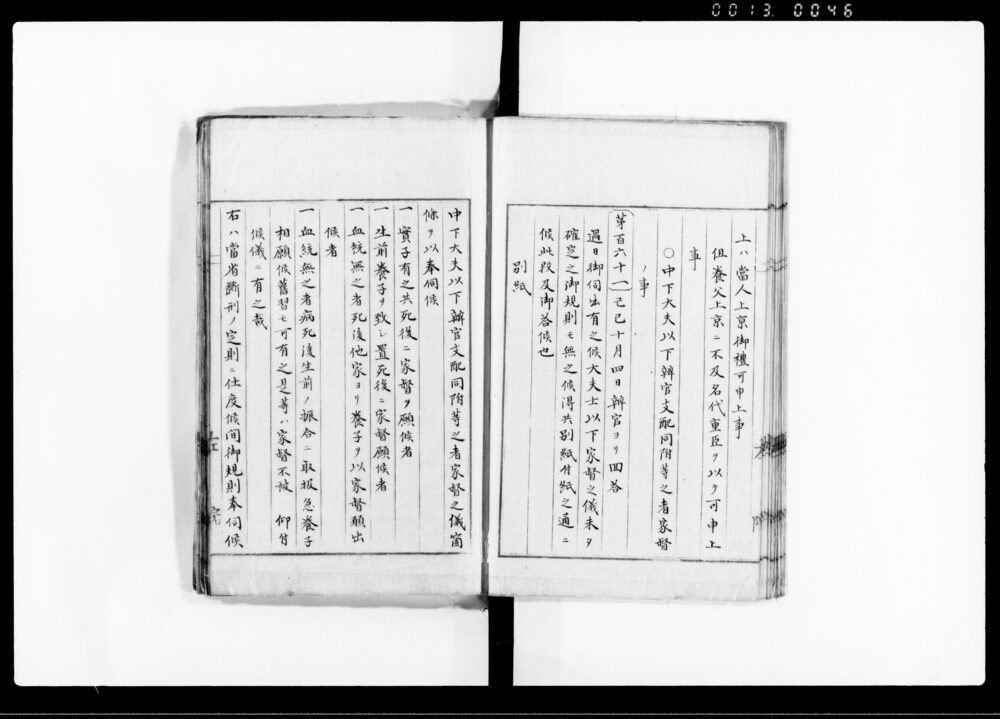 0013 0046
上ハ當人上京御禮可申上事
但養父上京ニ不及名代重臣ヲ以テ可申上
事
○中下大夫以下辨官支配同附等之者家督
ノ事
第百六十一己巳十月四日辨官ヨリ回答
過日御伺出有之候大夫士以下家督之儀未タ
確定之御規則モ無之候得共別紙付紙之通ニ
候此段及御答候也
別紙
中下大夫以下辨官支配同附等之者家督之儀箇
條ヲ以奉伺候
一實子有之共死後ニ家督ヲ願候者
一生前養子ヲ致シ置死後ニ家督願候者
一血統無之者死後他家ヨリ養子ヲ以家督願出
候者
一血統無之者病死後生前ノ振合ニ取扱急養子
相願候舊習モ可有之是等ハ家督不被 仰付
候儀ニ有之哉
右ハ當省斷刑ノ定則ニ仕度候間御規則奉伺候